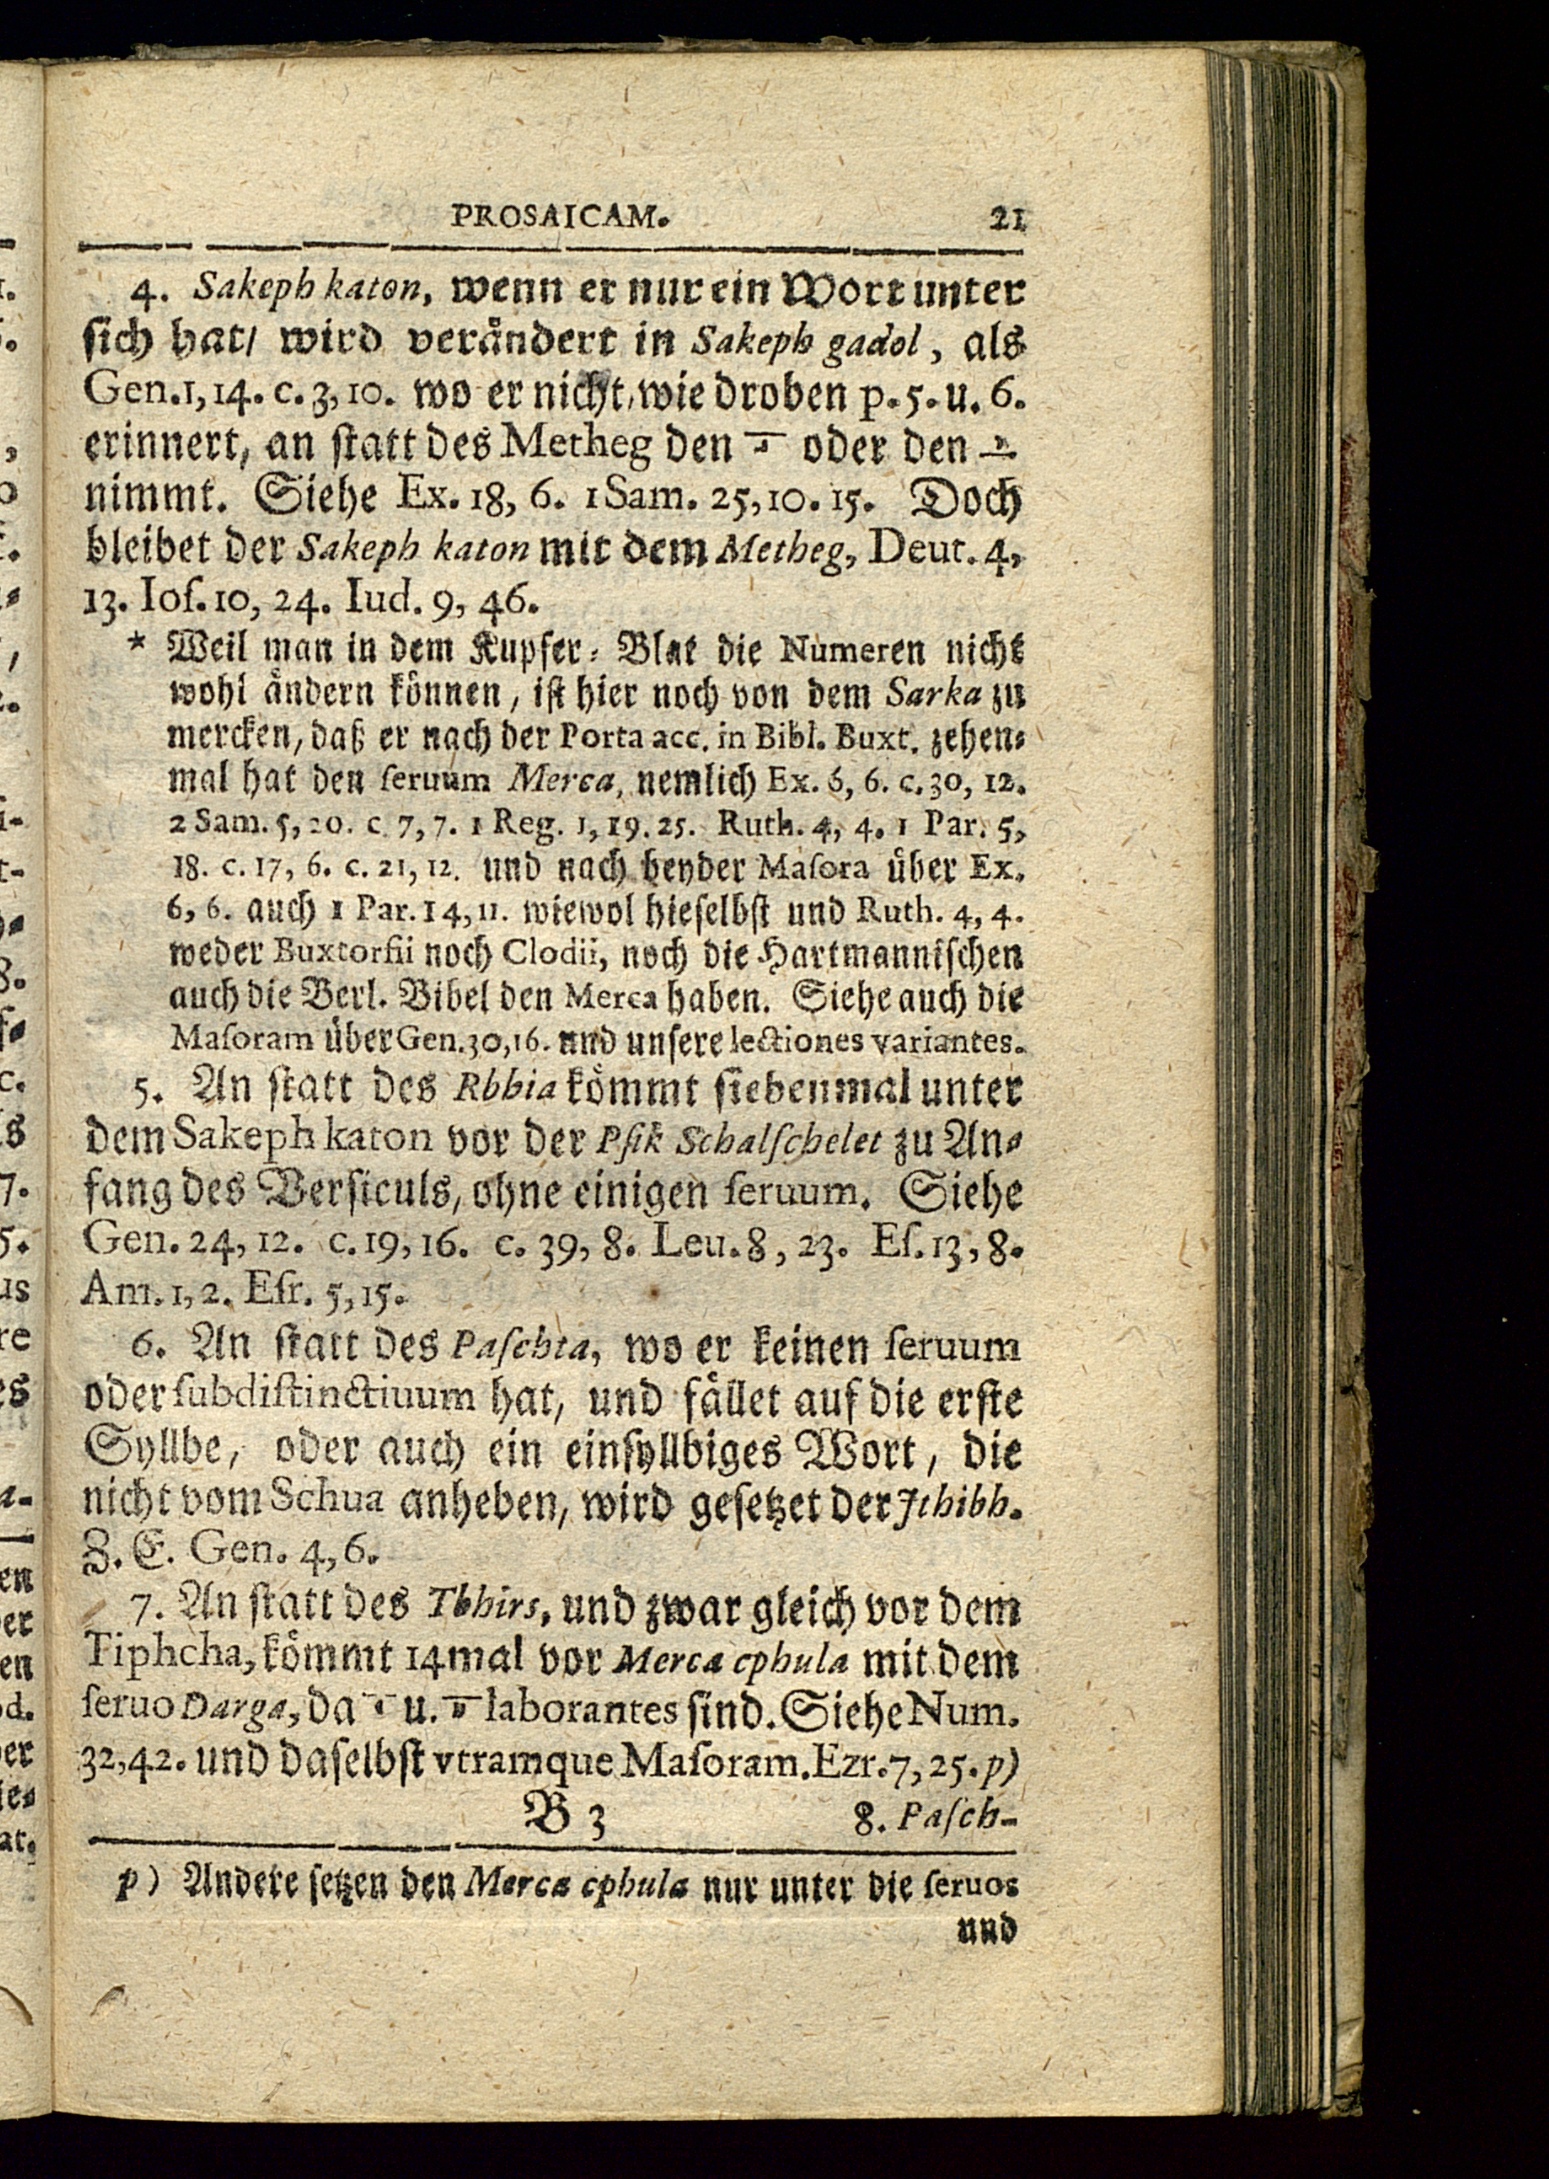 PROSAICAM. 21
4. Sakeph katon, wenn er nur ein Wort unter
sich hat/ wird verändert in Sakeph gadol, als
Gen. 1, 14. c. 3, 10. wo er nicht, wie droben p. 5. u. 6.
erinnert, an statt des Metheg den oder den
nimmt. Siehe Ex. 18, 6. 1 Sam. 25, 10. 15. Doch
bleibet der Sakeph katon mit dem Metheg, Deut. 4,
13. Ioſ. 10, 24. Iud. 9, 46.
* Weil man in dem Kupfer-Blat die Numeren nicht
wohl ändern können, ist hier noch von dem Sarka zu
mercken, daß er nach der Porta acc. in Bibl. Buxt. zehen-
mal hat den ſeruum Merca, nemlich Ex. 6, 6. c. 30, 12.
2 Sam. 5, 20. c. 7, 7. 1 Reg. 1, 19. 25. Ruth. 4, 4. 1 Par. 5,
18. c. 17, 6. c. 21, 12. und nach beyder Maſora über Ex.
6, 6. auch 1 Par. 14, 11. wiewol hieselbst und Ruth. 4, 4.
weder Buxtorfii noch Clodii, noch die Hartmannischen
auch die Berl. Bibel den Merca haben. Siehe auch die
Maſoram über Gen. 30, 16. und unsere lectiones variantes.
5. An statt des Rbbia kömmt siebenmal unter
dem Sakeph katon vor der Pſik Schalſchelet zu An-
fang des Versiculs, ohne einigen ſeruum. Siehe
Gen. 24, 12. c. 19, 16. c. 39, 8. Leu. 8, 23. Eſ. 13, 8.
Am. 1, 2. Eſr. 5, 15.
6. An statt des Paſchta, wo er keinen ſeruum
oder ſubdiſtinctiuum hat, und fället auf die erste
Syllbe, oder auch ein einsyllbiges Wort, die
nicht vom Schua anheben, wird gesetzet der Jthibh.
Z. E. Gen. 4, 6.
7. An statt des Tbhirs, und zwar gleich vor dem
Tiphcha, kömmt 14mal vor Merca cphula mit dem
ſeruo Darga, da u. laborantes sind. Siehe Num.
32, 42. und daselbst vtramque Maſoram. Ezr. 7, 25. p)
B 3 8. Paſch-
p) Andere setzen den Merca cphula nur unter die ſeruos
und